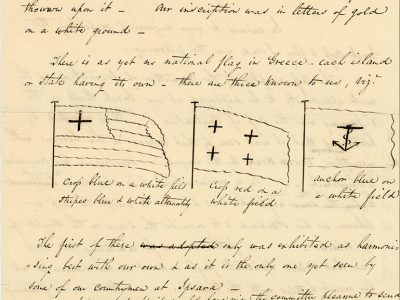 thrown upon it – Our inscription was in letters of gold
on a white ground –
There is as yet no national flag in Greece – each island
or State having its own – there are three known to us, viz.
Crop blue on a white field
stripes blue & white alternately
Crop red on a
white field
anchor blue on
a white field
The first of these was adopted only was exhibited as harmoni
=sing best with our own & as it is the only one yet seen by
some of our countrymen at Ipsara –
the committee pleasure to send